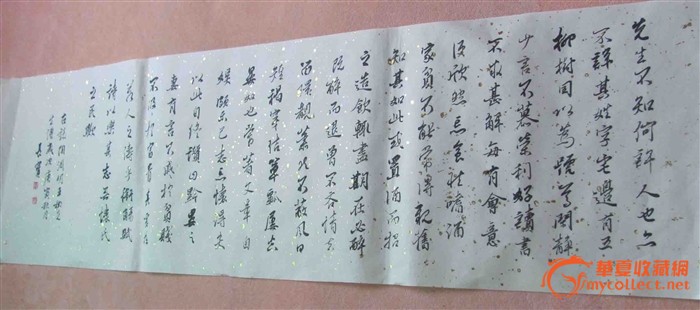 先生不知何許人也亦
不詳其姓字宅邊有五
柳樹因以為號焉閒靜
少言不慕榮利好讀書
不求甚解每有會意
便欣然忘食性嗜酒
家貧不能常得親舊
知其如此或置酒而招
之造飲輒盡期在必醉
既醉而退曾不吝情去
留環堵蕭然不蔽風日
短褐穿結簞瓢屢空
晏如也常著文章自
娛頗示己志忘懷得失
以此自終贊曰黔婁之
妻有言不戚於貧賤
不汲於富貴其言
若人之儔乎銜觴賦
詩以樂其志無懷氏
之民歟
華夏收藏网
mycollect.net